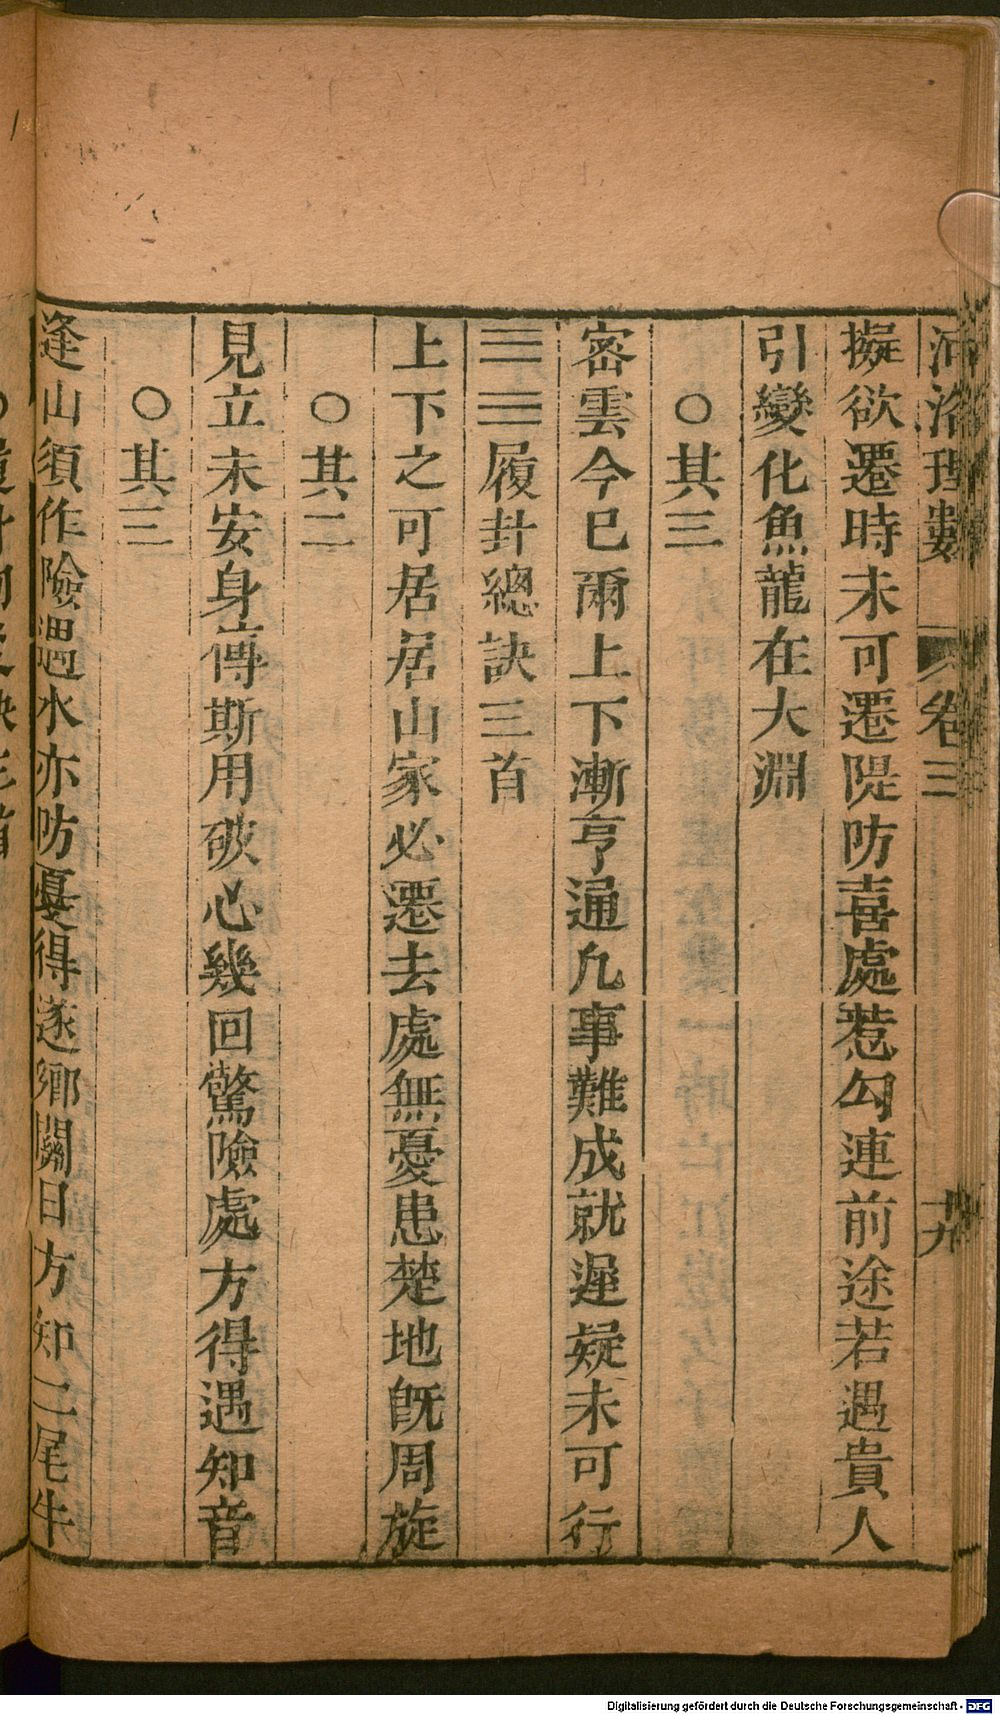 河洛理數 卷三 十九
擬欲遷時未可遷隄防喜處惹勾連前途若遇貴人
引變化魚龍在大淵
○其三
密雲今已爾上下漸亨通凡事難成就遲疑未可行
☰☱履卦總訣三首
上下之可居居山家必遷去處無憂患楚地旣周旋
○其二
見立未安身傳斯用破心幾回驚險處方得遇知音
○其三
逢山須作險遇水亦防憂得遂鄉關日方知二尾牛
Digitalisierung gefördert durch die Deutsche Forschungsgemeinschaft - DFG